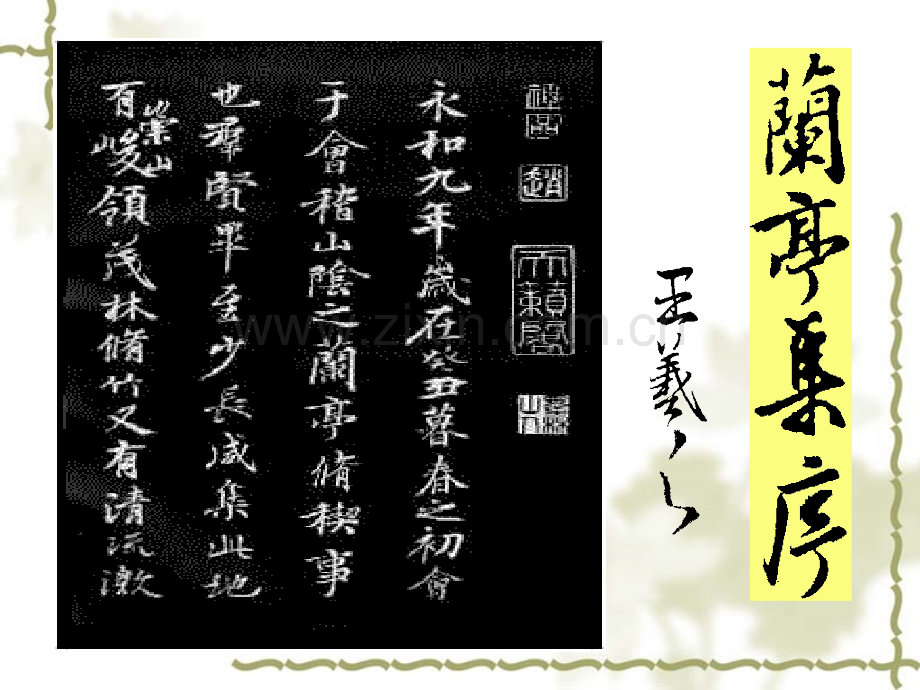 蘭亭集序
王羲之
永和九年歲在癸丑暮春之初會
于會稽山陰之蘭亭脩稧事
也羣賢畢至少長咸集此地
有崇山峻領茂林脩竹又有清流激
天籟閣
趙